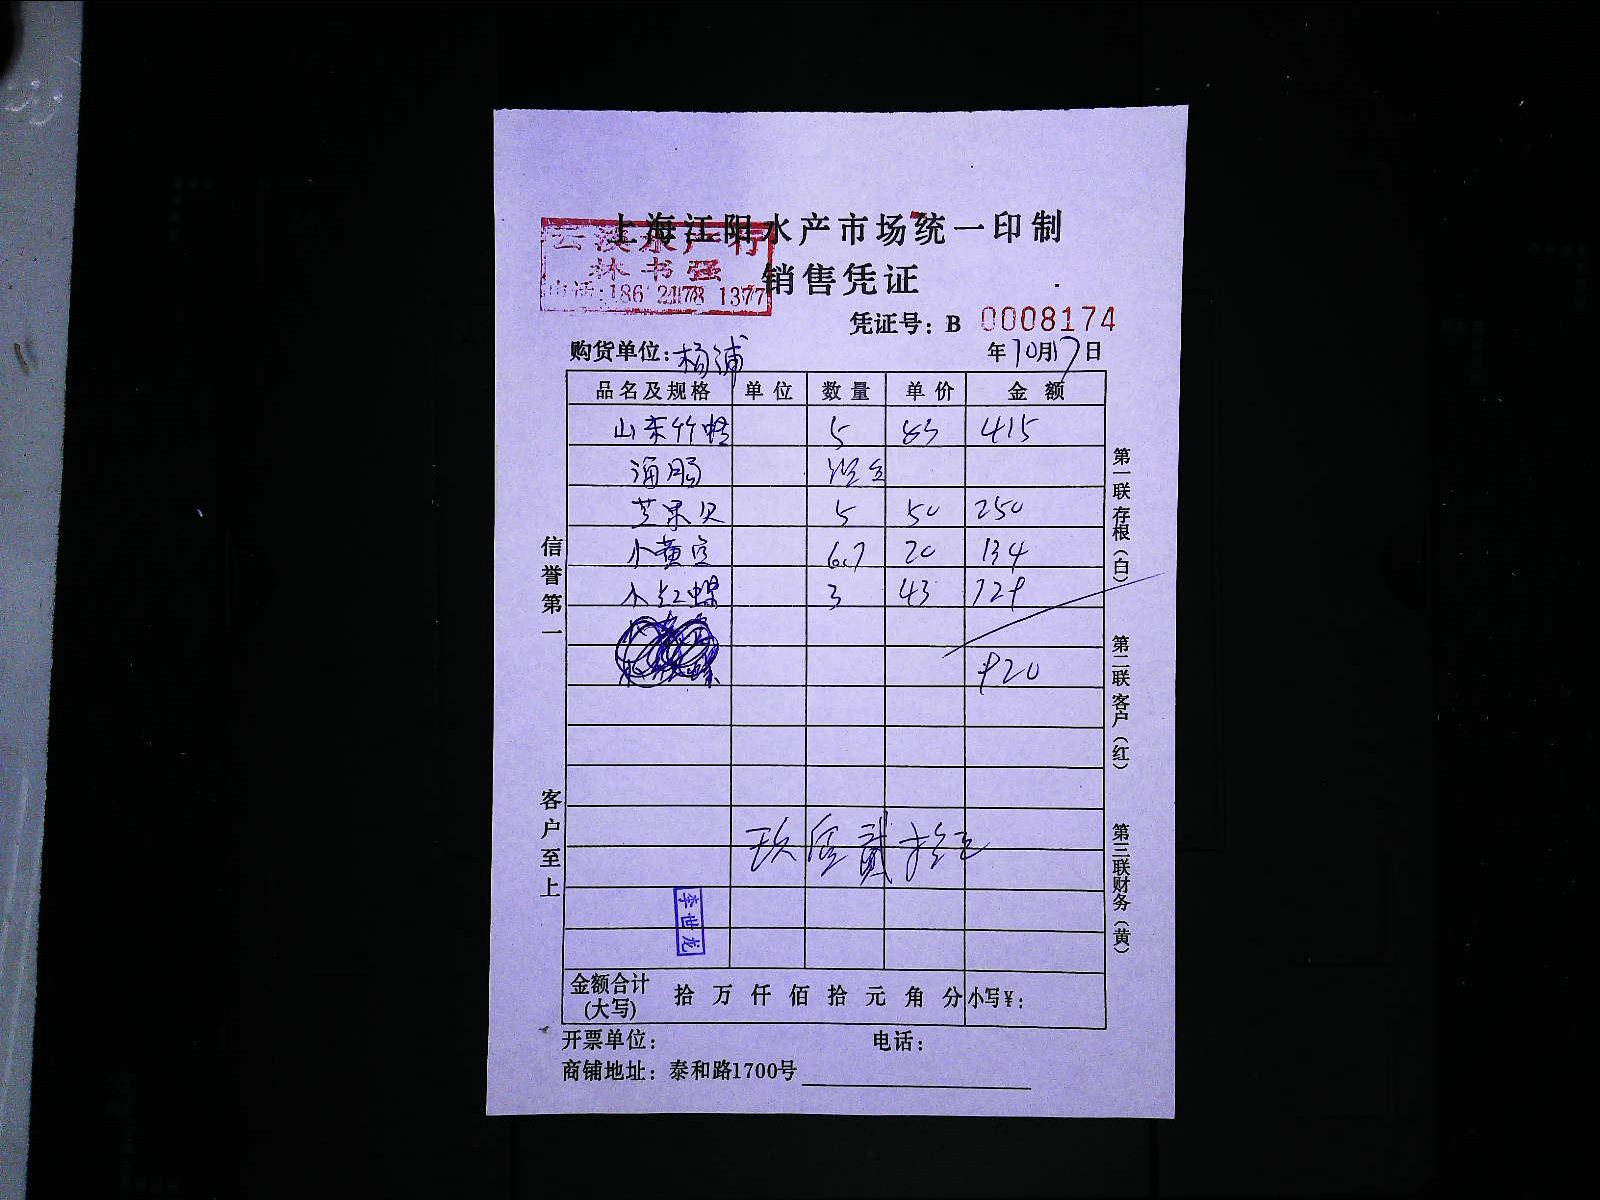 上海江阳水产市场统一印制
云溪水产行
林书强
电话:186 2178 1377
销售凭证
凭证号: B 0008174
购货单位: 杨浦 年10月17日
品名及规格 单位 数量 单价 金额
山东竹蛏 5 83 415
海肠
芒果贝 5 50 250
小黄 6.7 20 134
小红螺 3 43 129
920
玖佰贰拾元
李世龙
金额合计(大写) 拾 万 仟 佰 拾 元 角 分 小写¥:
开票单位: 电话:
商铺地址: 泰和路1700号
信誉第一
客户至上
第一联 存根(白)
第二联 客户(红)
第三联 财务(黄)